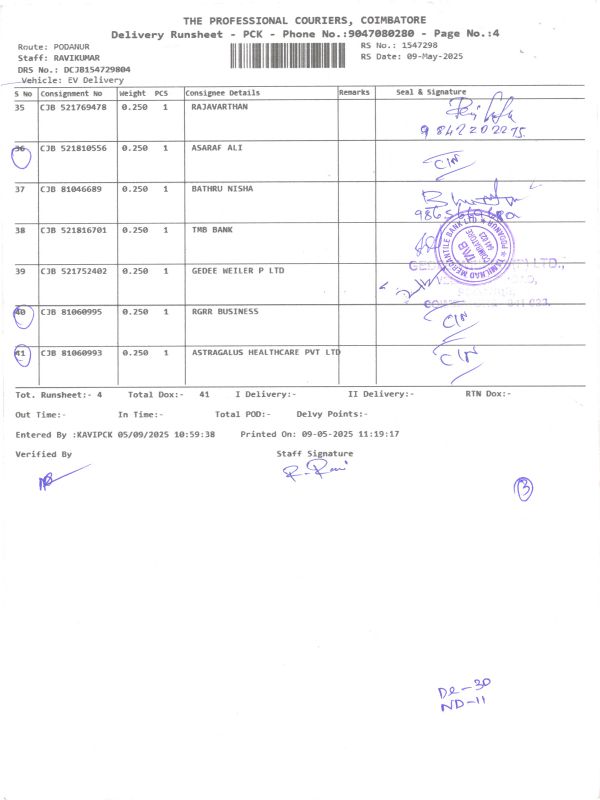 THE PROFESSIONAL COURIERS, COIMBATORE
Delivery Runsheet - PCK - Phone No.:9047080280 - Page No.:4
Route: PODANUR
RS No.: 1547298
Staff: RAVIKUMAR
RS Date: 09-May-2025
DRS No.: DCJB154729804
Vehicle: EV Delivery
S No Consignment No Weight PCS Consignee Details Remarks Seal & Signature
35 CJB 521769478 0.250 1 RAJAVARTHAN
9842202275
36 CJB 521810556 0.250 1 ASARAF ALI CIN
37 CJB 81046689 0.250 1 BATHRU NISHA
38 CJB 521816701 0.250 1 TMB BANK
TAMILNAD MERCANTILE BANK LTD ★ PODANUR ★
TMB
COIMBATORE
641 023
39 CJB 521752402 0.250 1 GEDEE WEILER P LTD
40 CJB 81060995 0.250 1 RGRR BUSINESS CIN
41 CJB 81060993 0.250 1 ASTRAGALUS HEALTHCARE PVT LTD CIN
Tot. Runsheet:- 4 Total Dox:- 41 I Delivery:- II Delivery:- RTN Dox:-
Out Time:- In Time:- Total POD:- Delvy Points:-
Entered By :KAVIPCK 05/09/2025 10:59:38 Printed On: 09-05-2025 11:19:17
Verified By Staff Signature
R. Ravi
3
De-30
ND-11